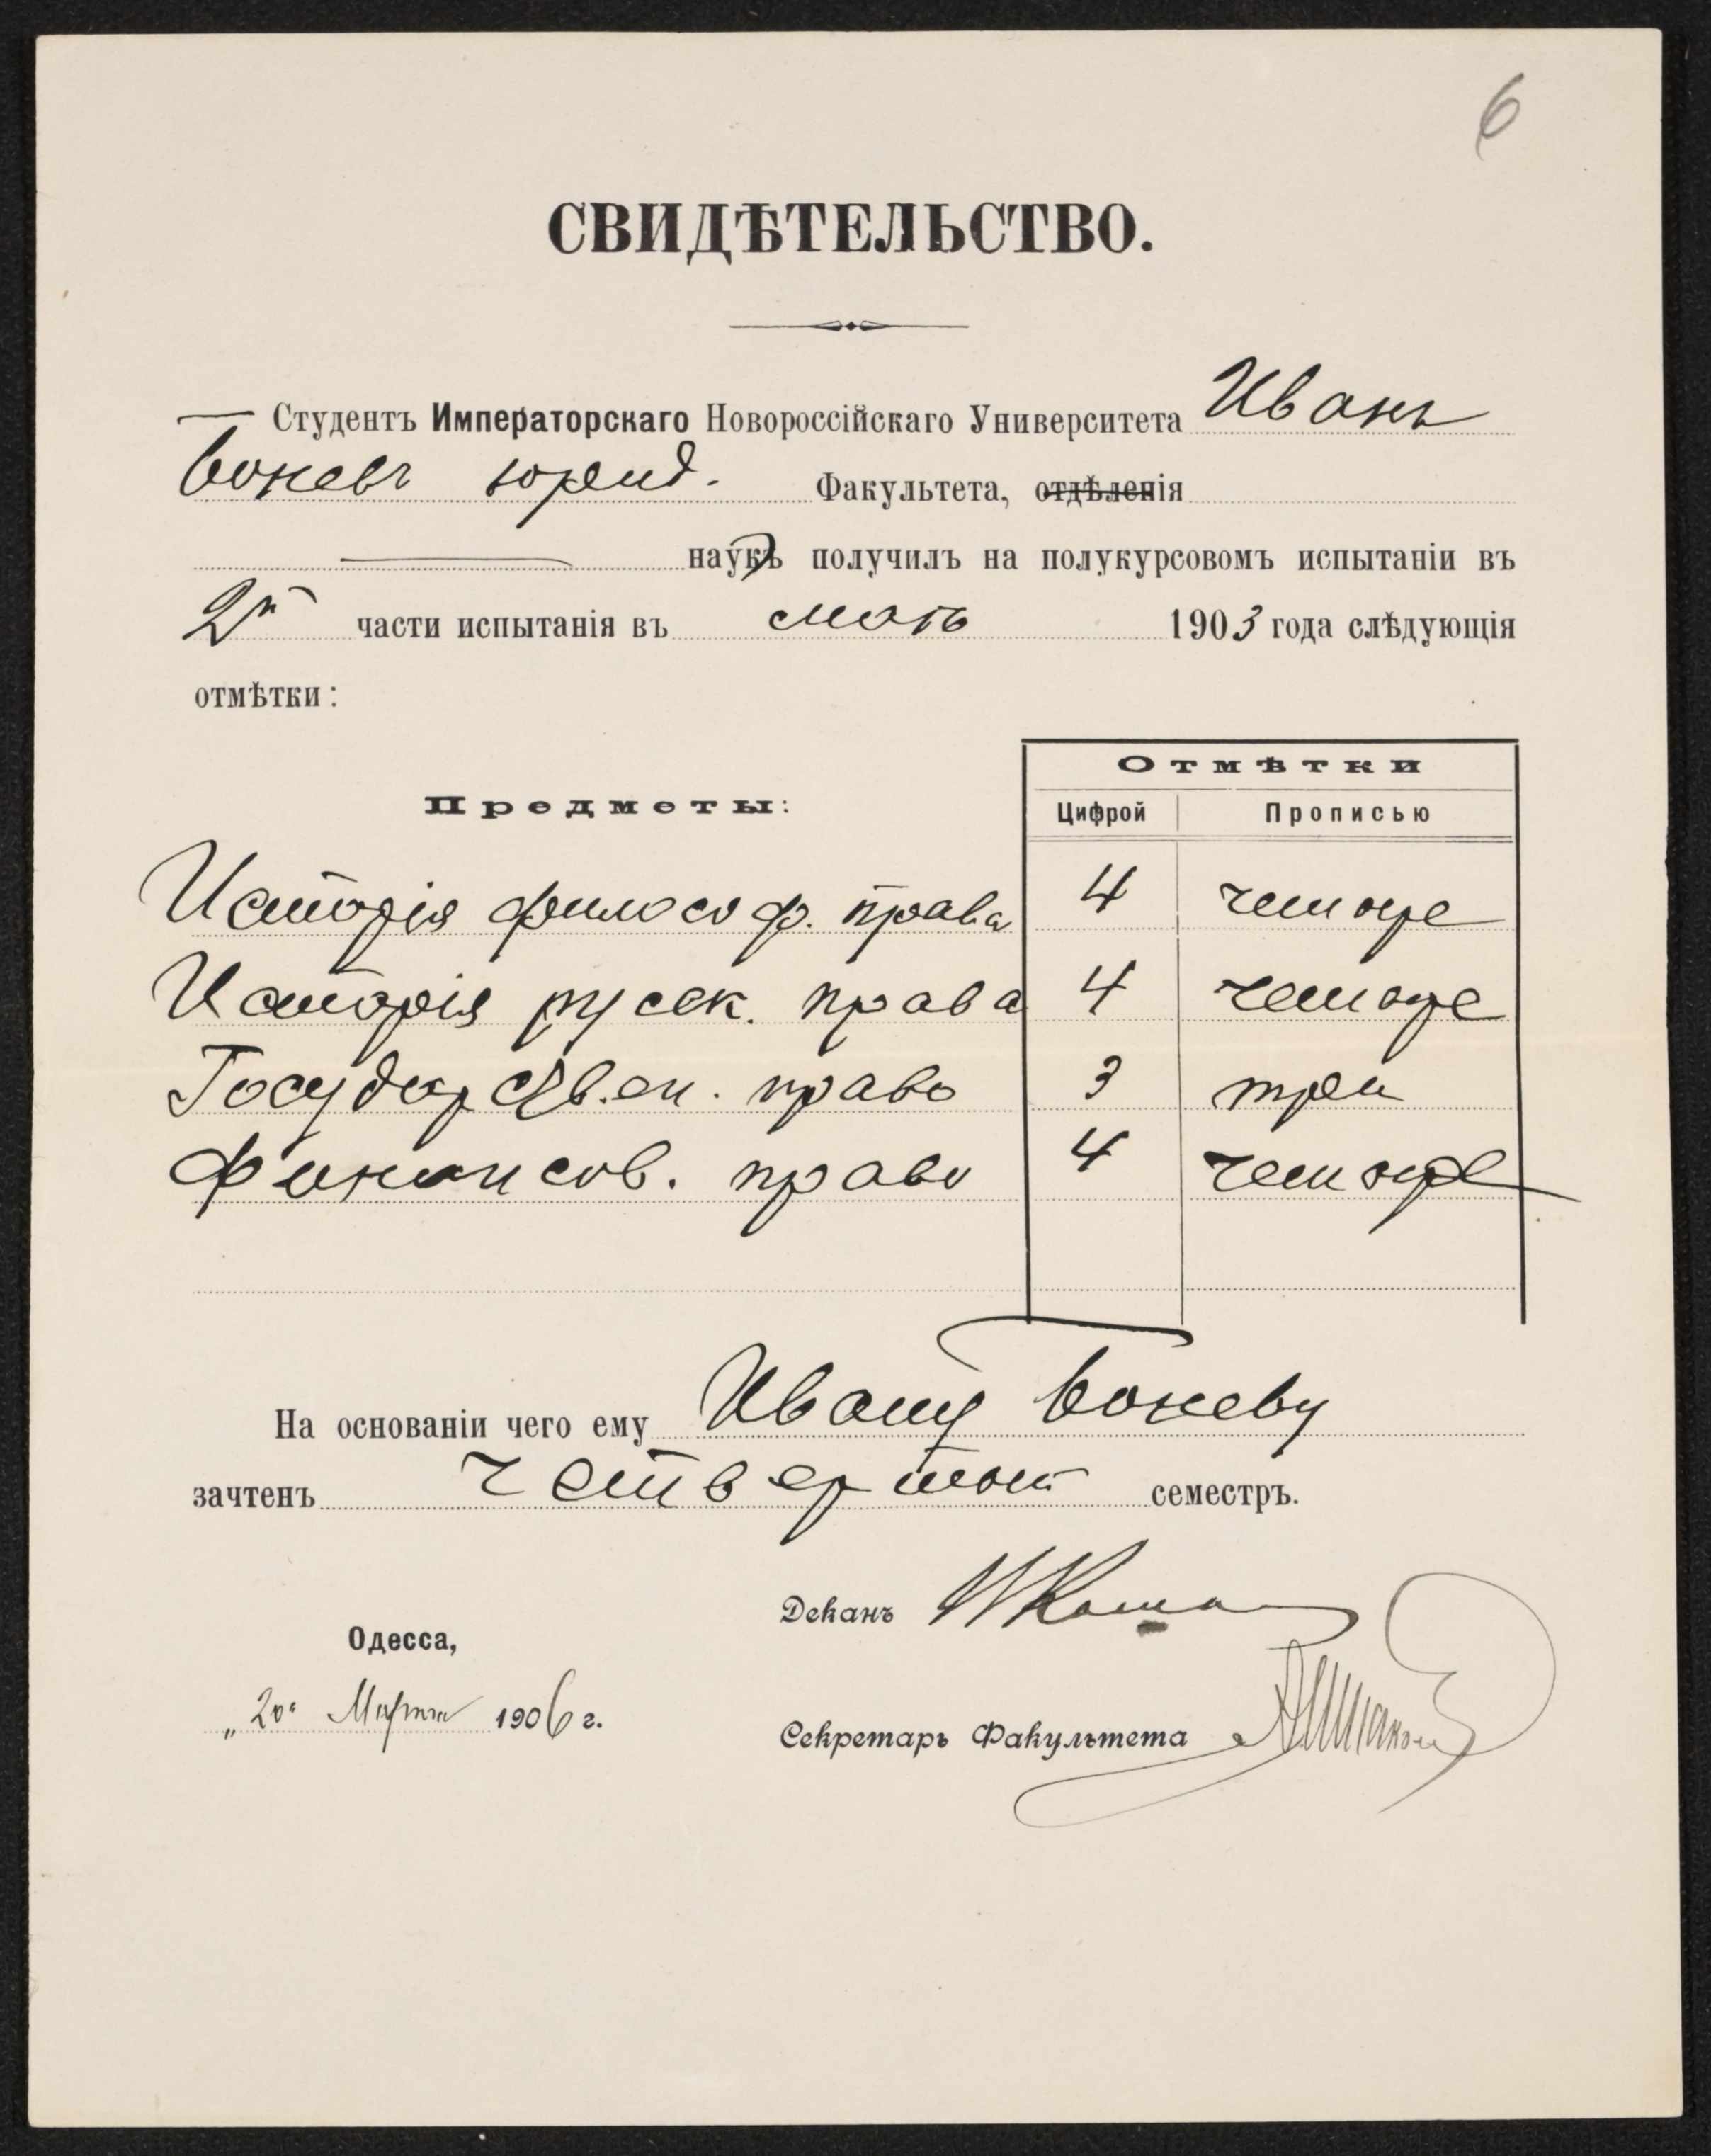 6
СВИДѢТЕЛЬСТВО.
Студентъ Императорскаго Новороссійскаго Университета Иванъ
Боневъ юрид. Факультета, отдѣленія
наукъ получилъ на полукурсовомъ испытаніи въ
2й части испытанія въ маѣ 1903 года слѣдующія
отмѣтки:
Предметы:
Отмѣтки
Цифрой Прописью
Исторія философ. права 4 четыре
Исторія русск. права 4 четыре
Государств.ен. право 3 три
Финансов. право 4 четыре
На основаніи чего ему Ивану Боневу
зачтенъ четвертый семестръ.
Деканъ
Одесса,
„20" Марта 1906 г.
Секретарь Факультета